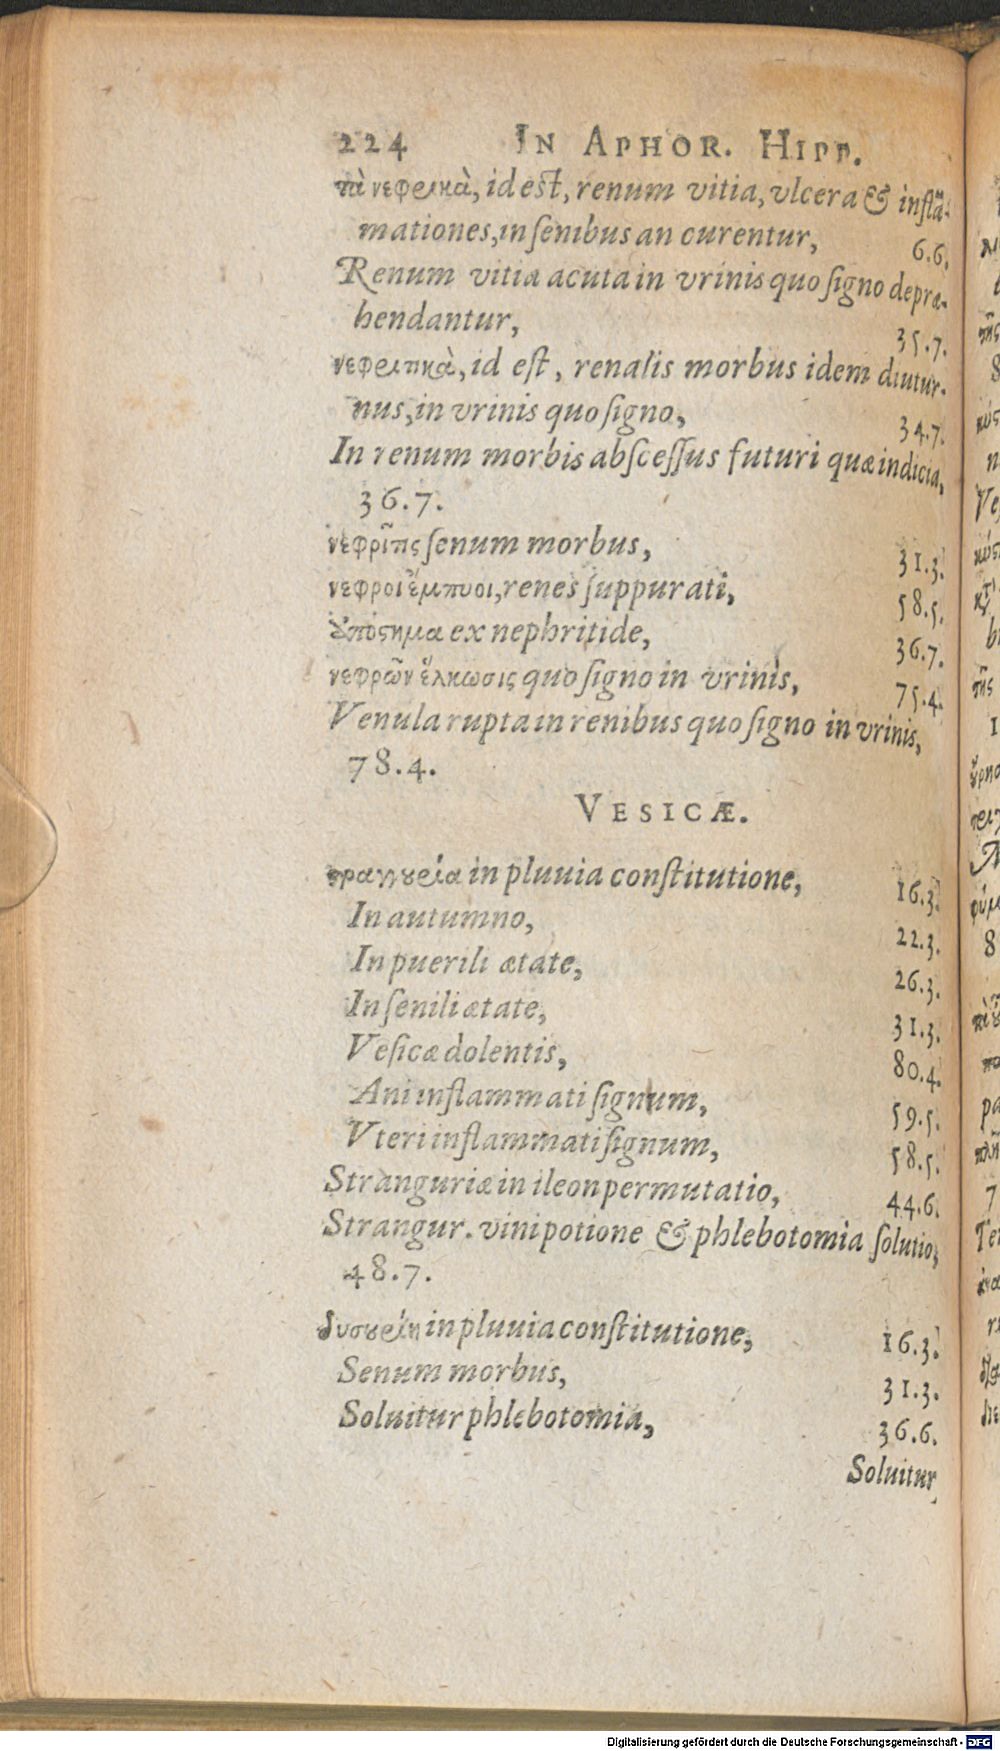 224 IN APHOR. HIPP.
τὰ νεφριτικὰ, id est, renum vitia, vlcera & inflā-
mationes, in senibus an curentur, 6.6.
Renum vitia acuta in vrinis quo signo depræ-
hendantur, 35.7.
νεφριτικὰ, id est, renalis morbus idem diutur-
nus, in vrinis quo signo, 34.7.
In renum morbis abscessus futuri quæ indicia,
36.7.
νεφρῖτις senum morbus, 31.3.
νεφροὶ ἔμπυοι, renes suppurati, 58.5.
ἀπόστημα ex nephritide, 36.7.
νεφρῶν ἕλκωσις quo signo in vrinis, 75.4.
Venula rupta in renibus quo signo in vrinis,
78.4.
VESICÆ.
στραγγουρία in pluuia constitutione, 16.3.
In autumno, 22.3.
In puerili ætate, 26.3.
In senili ætate, 31.3.
Vesicæ dolentis, 80.4.
Ani inflammati signum, 59.5.
Vteri inflammati signum, 58.5.
Stranguriæ in ileon permutatio, 44.6.
Strangur. vini potione & phlebotomia solutio,
48.7.
δυσουρίη in pluuia constitutione, 16.3.
Senum morbus, 31.3.
Soluitur phlebotomia, 36.6.
Soluitur
Digitalisierung gefördert durch die Deutsche Forschungsgemeinschaft - DFG